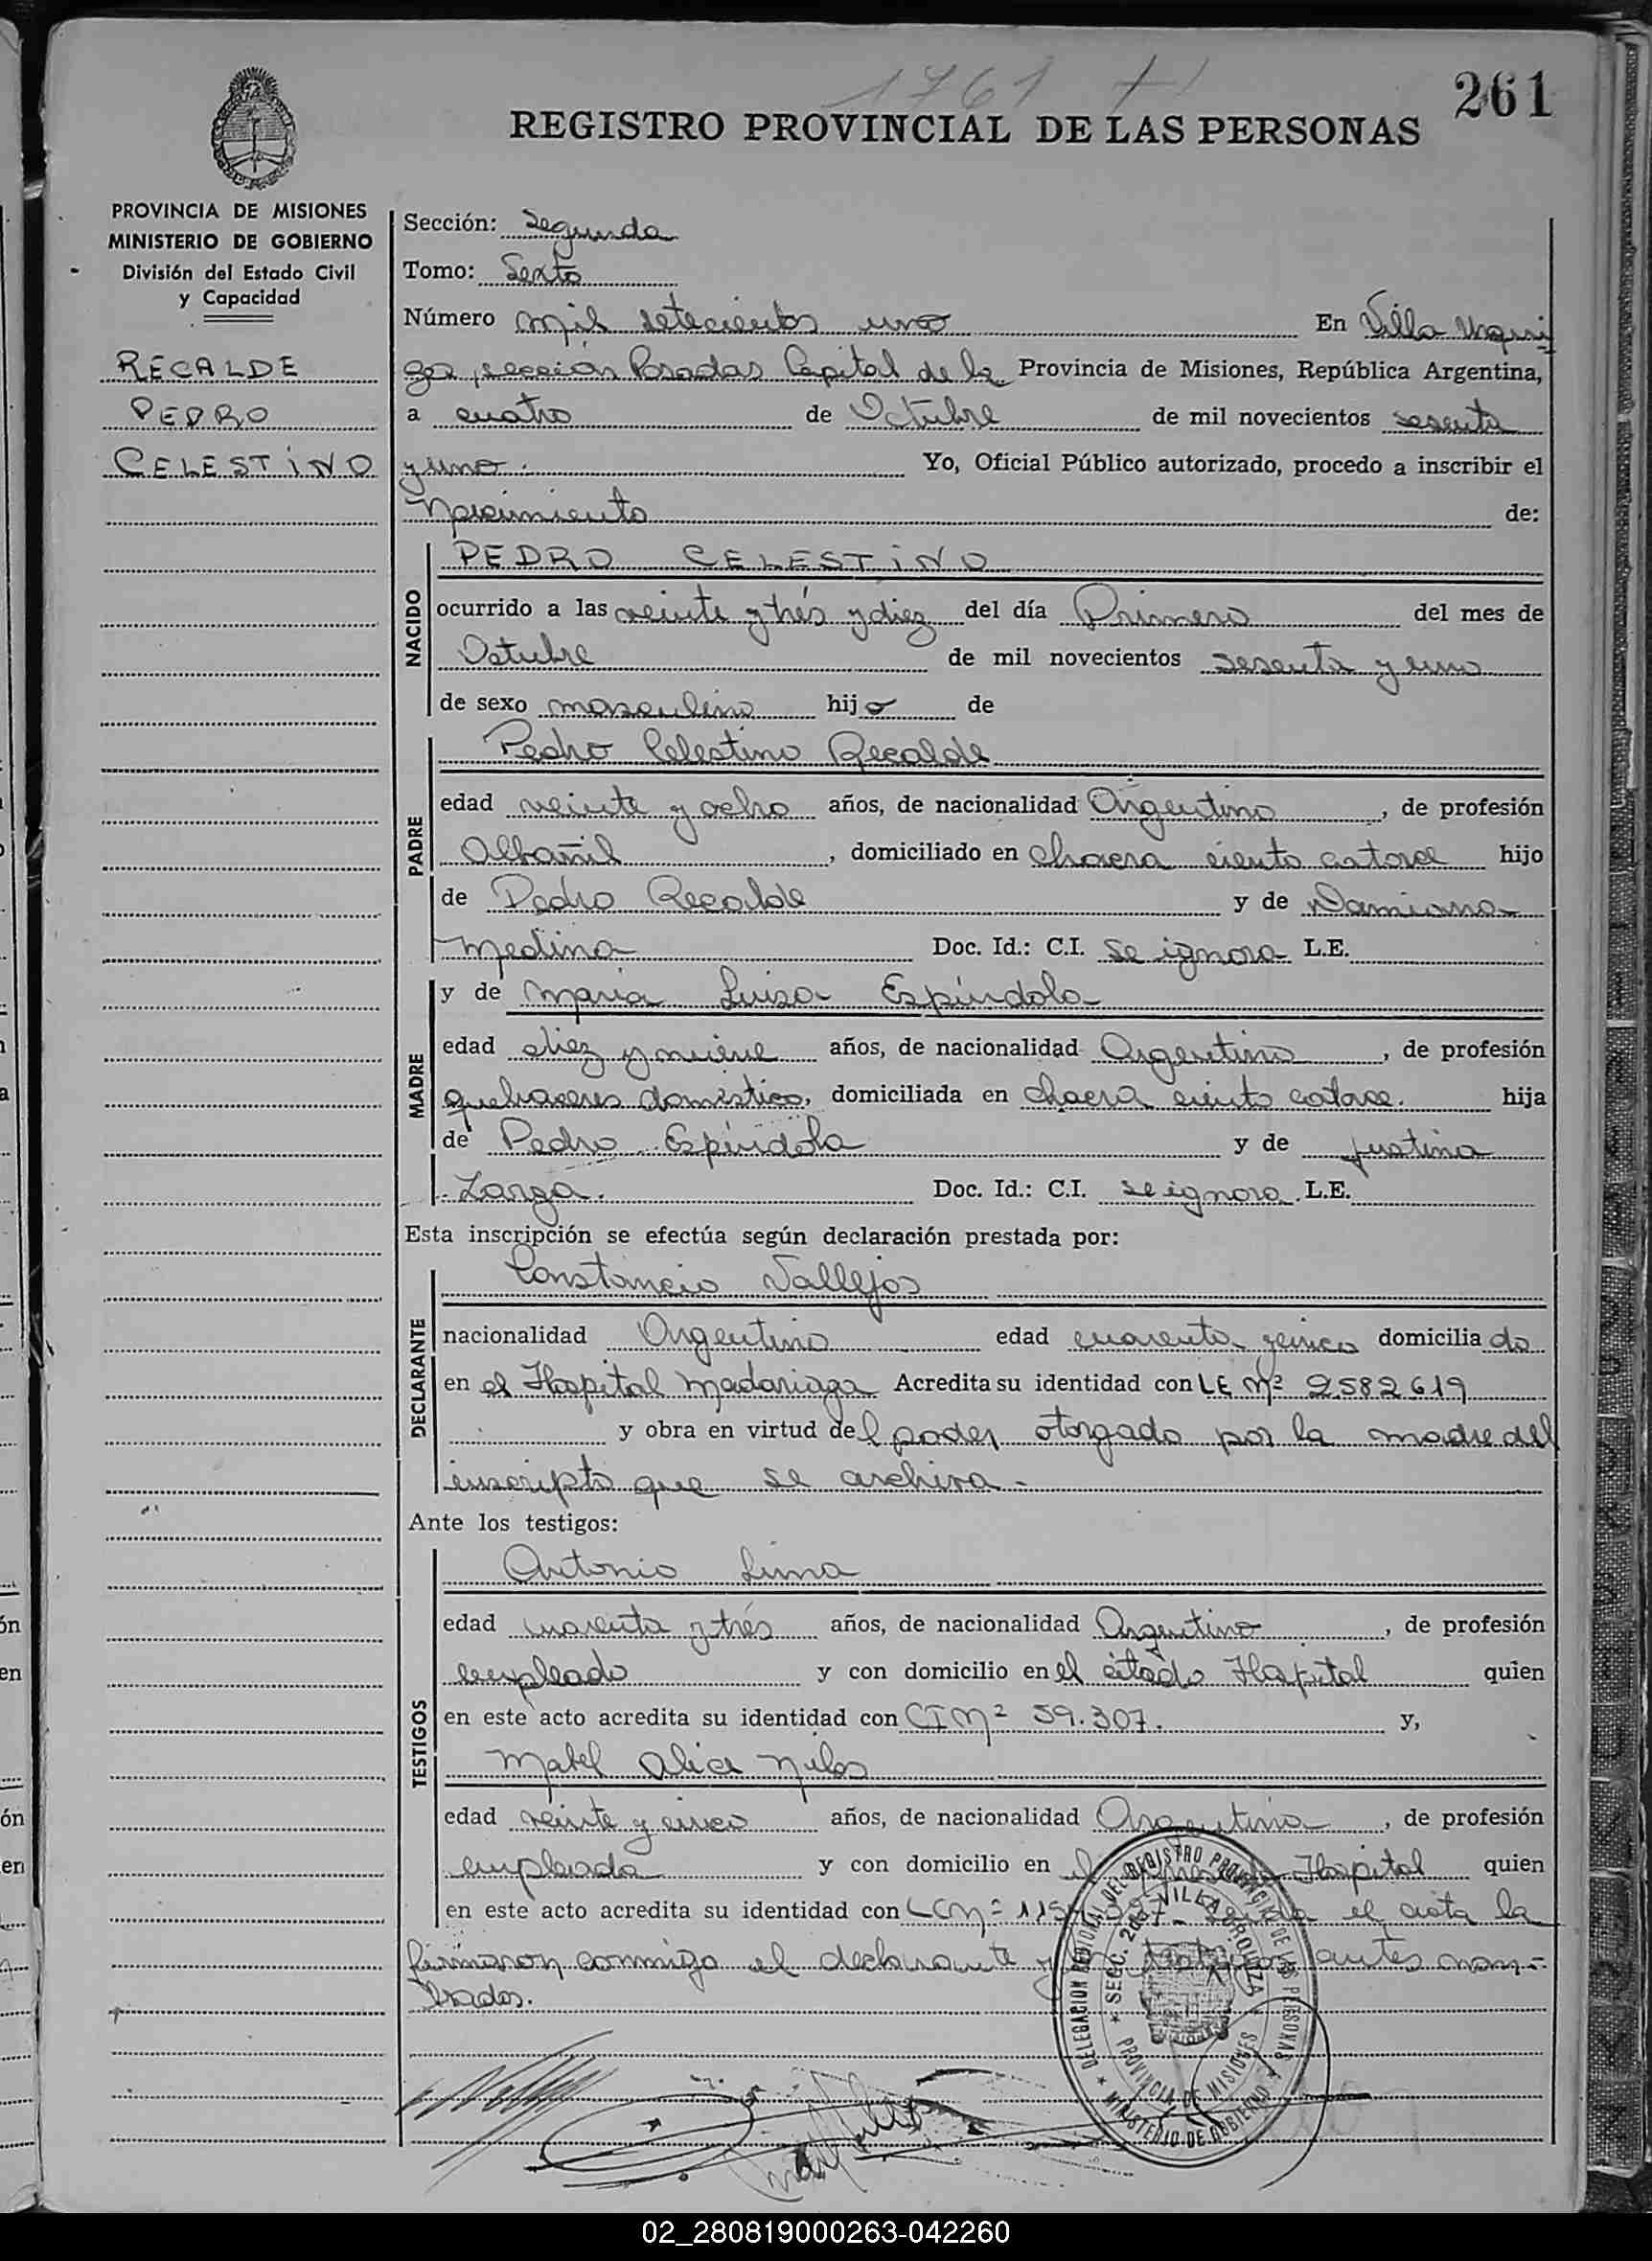 1761
261
REGISTRO PROVINCIAL DE LAS PERSONAS
PROVINCIA DE MISIONES
MINISTERIO DE GOBIERNO
División del Estado Civil
y Capacidad
RECALDE
PEDRO
CELESTINO
Sección: Segunda
Tomo: Sexto
Número mil setecientos uno En Villa Urqui
za, sección Posadas Capital de la Provincia de Misiones, República Argentina,
a cuatro de Octubre de mil novecientos sesenta
y uno. Yo, Oficial Público autorizado, procedo a inscribir el
Nacimiento de:
NACIDO
PEDRO CELESTINO
ocurrido a las veinte y trés y diez del día Primero del mes de
Octubre de mil novecientos sesenta y uno
de sexo masculino hijo de
PADRE
Pedro Celestino Recalde
edad veinte y ocho años, de nacionalidad Argentino, de profesión
Albañil, domiciliado en chacra ciento catorce hijo
de Pedro Recalde y de Damiana
Medina Doc. Id.: C.I. se ignora L.E.
MADRE
y de Maria Luisa Espíndola
edad diez y nueve años, de nacionalidad Argentina, de profesión
quehaceres doméstico, domiciliada en chacra ciento catorce. hija
de Pedro Espíndola y de Justina
Zarza. Doc. Id.: C.I. se ignora. L.E.
Esta inscripción se efectúa según declaración prestada por:
DECLARANTE
Constancio Vallejos
nacionalidad Argentino edad cuarenta y cinco domiciliado
en el Hospital Madariaga Acredita su identidad con LE Nº 2582619
y obra en virtud del poder otorgado por la madre del
inscripto que se archiva.-
Ante los testigos:
TESTIGOS
Antonio Lima
edad cuarenta y trés años, de nacionalidad Argentino, de profesión
empleado y con domicilio en el citado Hospital quien
en este acto acredita su identidad con CI Nº 59.307. y,
Mabel Alicia
edad veinte y cinco años, de nacionalidad Argentina, de profesión
empleada y con domicilio en el Hospital quien
en este acto acredita su identidad con LC Nº el acta la
firmaron conmigo el declarante y antes nom-
brados.
DELEGACION REGIONAL DEL REGISTRO PROVINCIAL DE LAS PERSONAS
SECC. 2da. VILLA URQUIZA
PROVINCIA DE MISIONES
MINISTERIO DE GOBIERNO
02_280819000263-042260